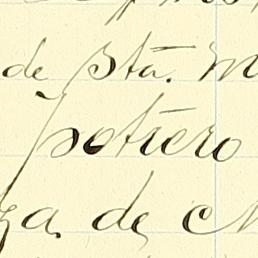 de Sta. M
potrero
za de M